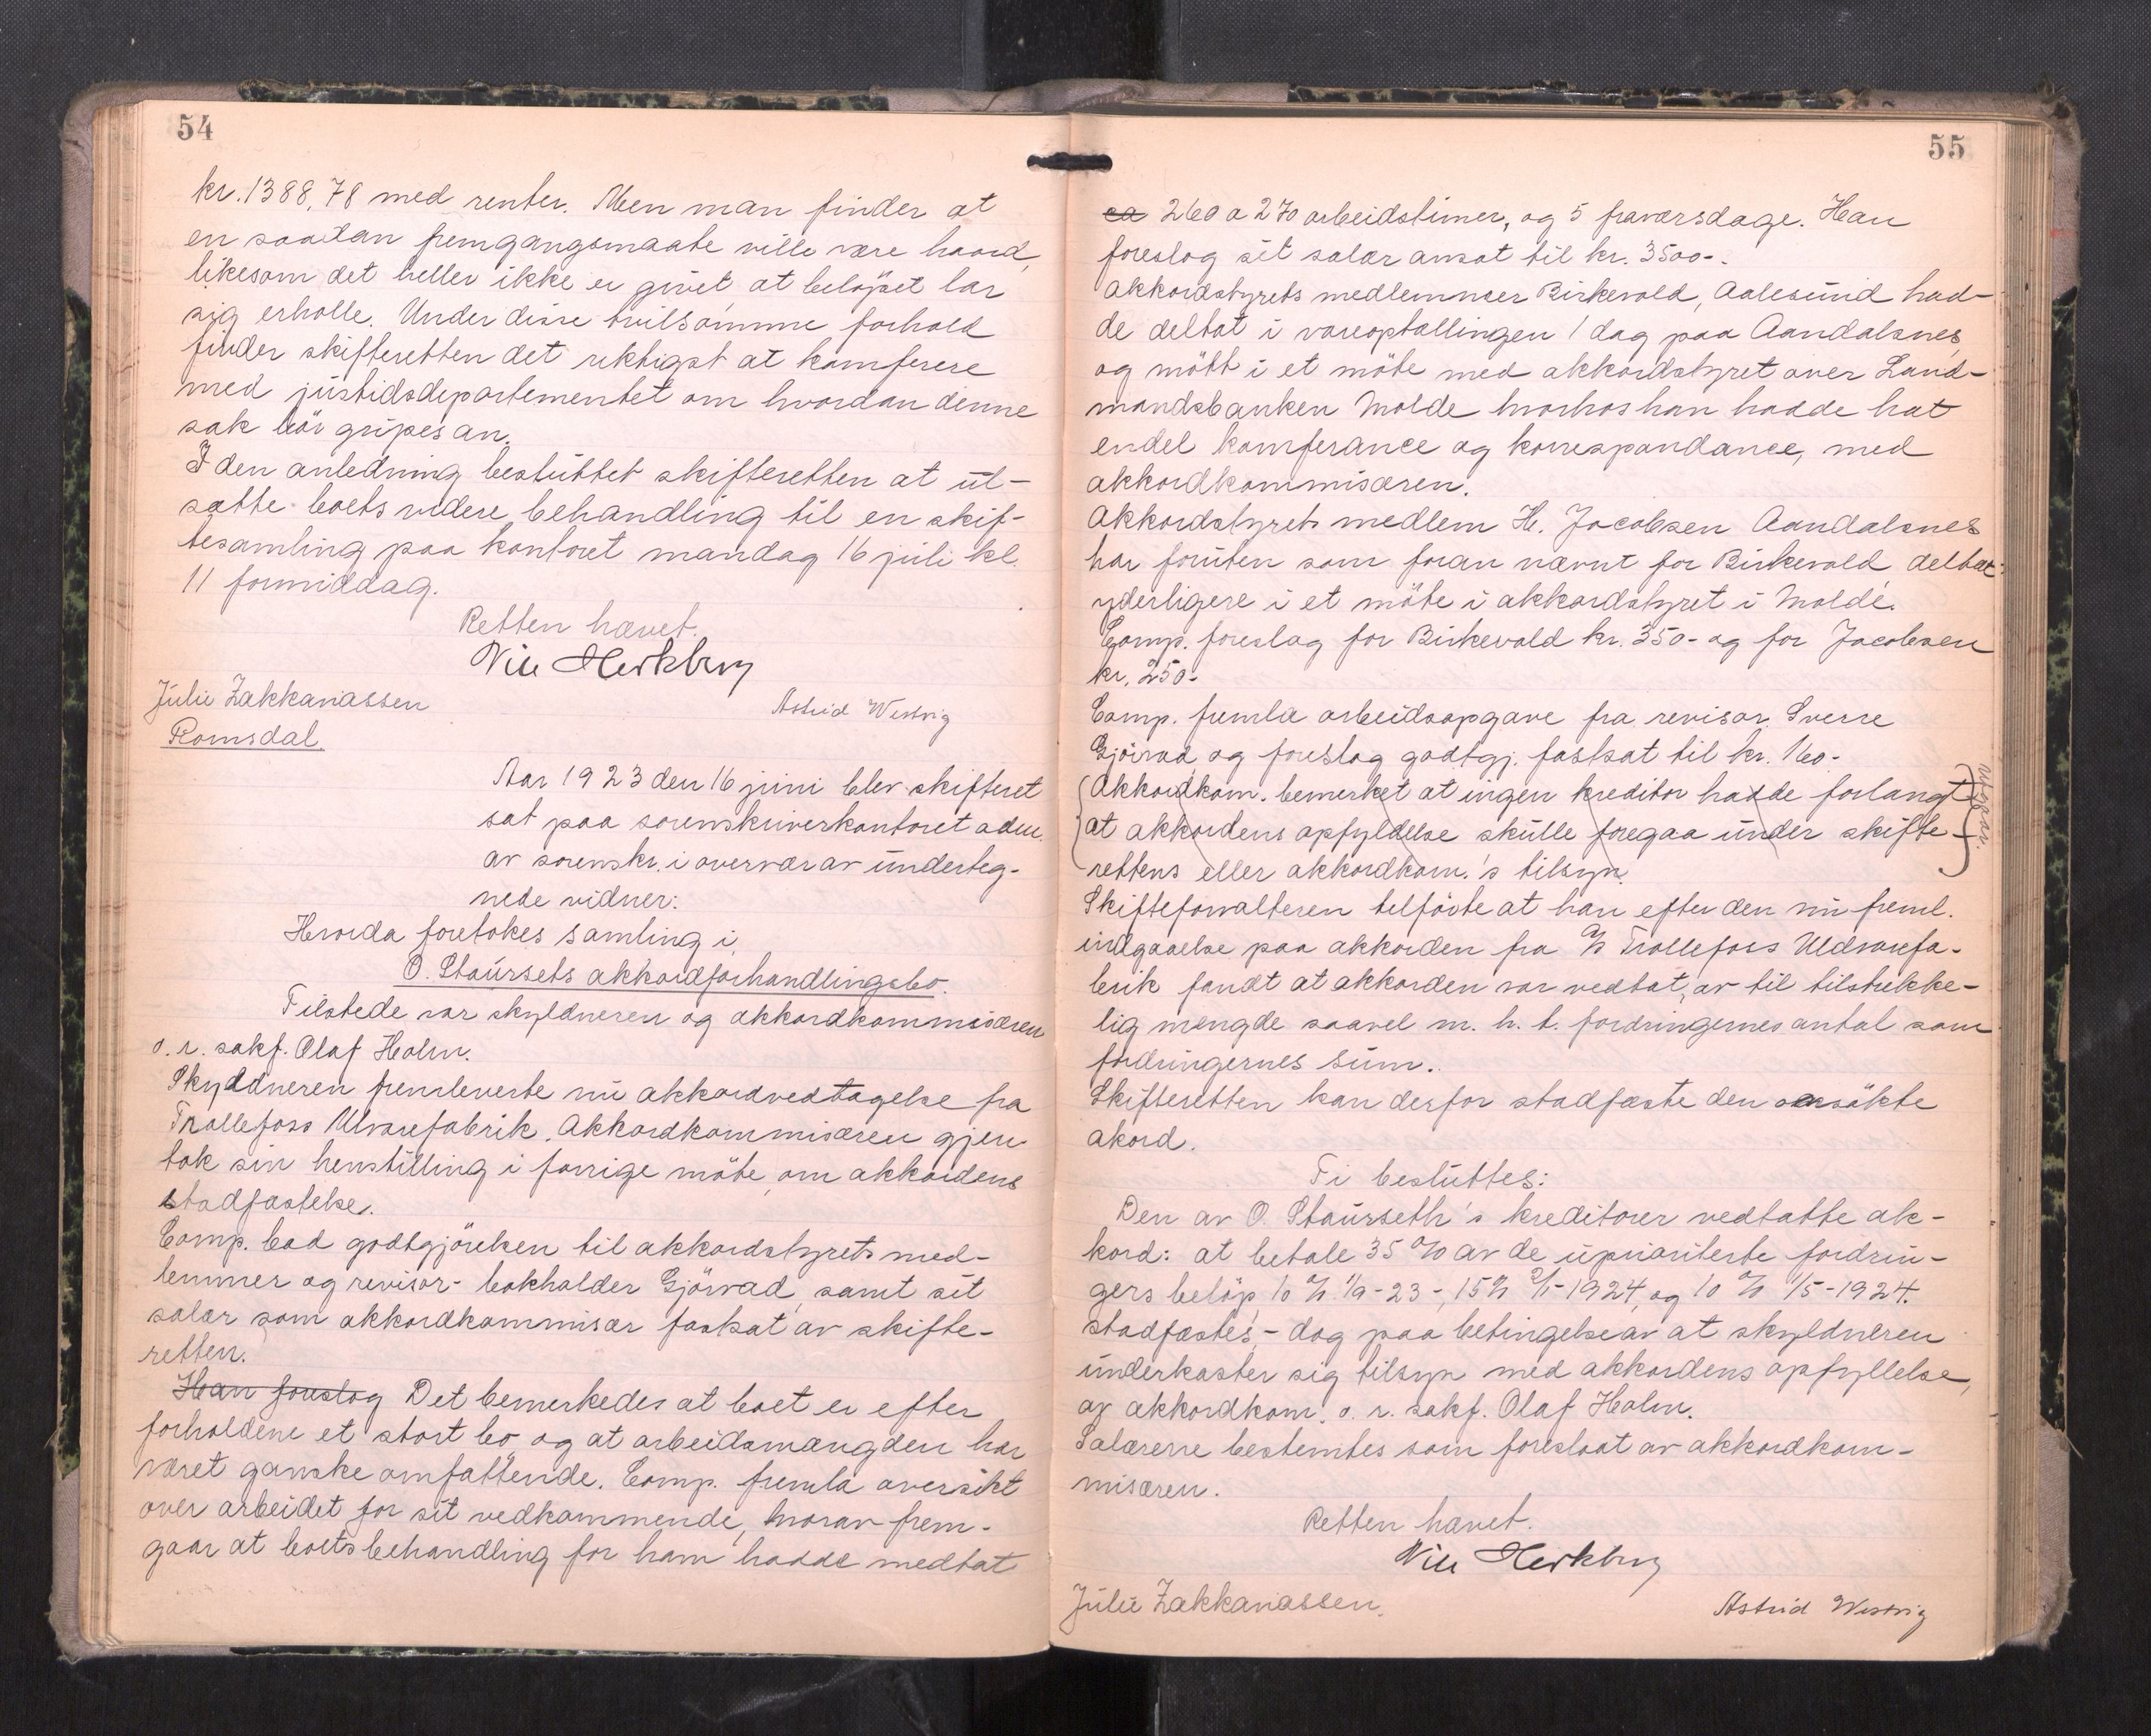 54
kr. 1388,78 med renter. Men man finder at
en saadan fremgangsmaate ville være haard,
likesom det heller ikke er givet at beløpet lar
sig erholle. Under disse tvilsomme forhold
finder skifteretten det riktigst at komferere
med justidsdepartementet om hvordan denne
sak bör gripes an.
I den anledning besluttet skifteretten at ut-
sætte boets videre behandling til en skif-
tesamling paa kontoret mandag 16 juli kl.
11 formiddag.
Retten hævet.
Julie Zakkariassen
Astrid Westvig
Romsdal.
Aar 1923 den 16 juni blev skifteret
sat paa sorenskriverkontoret adm.
av sorenskr. i overvær av underteg-
nede vidner:
Hvorda foretokes samling i
O. Staursets akkordforhandlingsbo.
Tilstede var skyldneren og akkordkommisæren
o. r. sakf. Olaf Holm.
Skyldneren fremleverte nu akkordvedtagelse fra
Trollefoss Ulvarefabrik. Akkordkommisæren gjen-
tok sin henstilling i forrige möte om akkordens
stadfæstelse.
Comp. bad godtgjörelsen til akkordstyrets med-
lemmer og revisor- bokholder Gjörvad, samt sit
salær som akkordkommisær fastsat av skifte-
retten.
Han foreslog Det bemerkedes at boet er efter
forholdene et stort bo, og at arbeidsmængden har
været ganske omfattende. Comp. fremla oversikt
over arbeidet for sit vedkommende, hvorav frem-
gaar at boets behandling for ham hadde medtat
55
ca 260 a 270 arbeidstimer, og 5 fraværsdage. Han
foreslog sit salær ansat til kr. 3500-.
Akkordstyrets medlemmer Birkevold, Aalesund had-
de deltat i vareoptællingen 1 dag paa Aandalsnes,
og mött i et möte med akkordstyret over Land-
mandsbanken Molde hvorhos han hadde hat
endel komferance og korrespondance, med
akkordkommisæren.
Akkordstyrets medlem H. Jacobsen Aandalsnes
har foruten som foran nævnt for Birkevold, deltat
yderligere i et möte i akkordstyret i Molde.
Comp. foreslog for Birkevold kr. 350- og for Jacobsen
kr. 250-
Comp. fremla arbeidsopgave fra revisor Sverre
Gjörvad, og foreslog godtgj. fastsat til kr. 160-
Akkordkom. bemerket at ingen kreditor hadde forlangt
at akkordens opfyldelse skulle foregaa under skifte-
rettens eller akkordkom.'s tilsyn.
utgaar.
Skifteforvalteren tilföiet at han efter den nu freml.
indgaaelse paa akkorden fra A/S Trollefoss Uldvarefa-
brik fandt at akkorden var vedtat, av til tilstrekke-
lig mengde saavel m. h. t. fordringernes antal som
fordringernes sum.
Skifteretten kan derfor stadfæste den ansökte
akord.
Ti besluttes:
Den av O. Staurseth's kreditorer vedtatte ak-
kord: at betale 35 % av de uprioriterte fordrin-
gers belöp, 10 % 1/9-23-, 15 % 2/1-1924, og 10 % 1/5-1924.
stadfæstes,- dog paa betingelse av at skyldneren
underkaster sig tilsyn med akkordens opfyllelse,
av akkordkom. o. r. sakf. Olaf Holm.
Salærerne bestemtes som foreslaat av akkordkom-
misæren.
Retten hævet.
Julie Zakkariassen.
Astrid Westvig